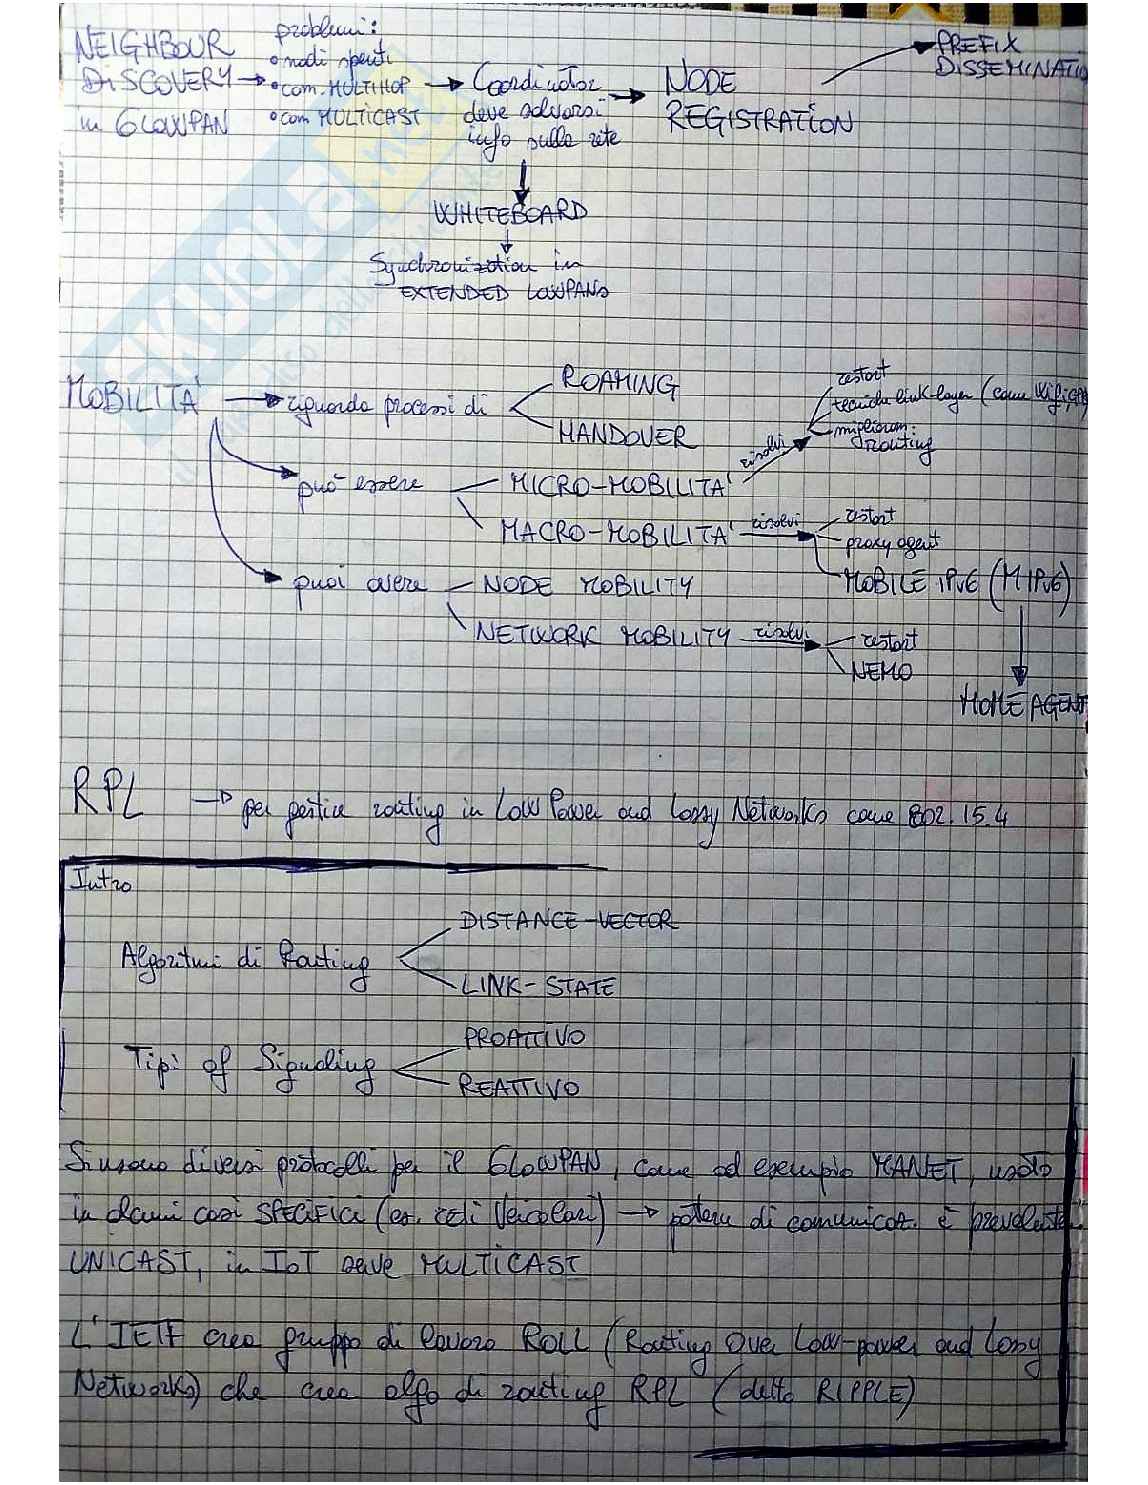 NEIGHBOUR
DISCOVERY →
in 6LOWPAN
problemi:
• nodi spenti
• com. MULTIHOP →
• com MULTICAST
Coordinator →
deve salvarsi
info sulla rete
NODE
REGISTRATION
PREFIX
DISSEMINATIO
WHITEBOARD
Synchronization in
EXTENDED LOWPANs
MOBILITA' → riguarda processi di
ROAMING
HANDOVER
può essere
MICRO-MOBILITA' risolvi
restart
tecniche link-layer (come Wifi,
miglioram.
routing
MACRO-MOBILITA' risolvi
restart
proxy agent
MOBILE IPv6 (MIPv6)
HOME AGENT
puoi avere
NODE MOBILITY
NETWORK MOBILITY risolvi
restart
NEMO
RPL → per gestire routing in Low Power and Lossy Networks come 802.15.4
Intro
Algoritmi di Routing
DISTANCE-VECTOR
LINK-STATE
Tipi of Signaling
PROATTIVO
REATTIVO
Si usano diversi protocolli per il 6LOWPAN, come ad esempio MANET, usato
in alcuni casi SPECIFICI (es. reti Veicolari) → pattern di comunicaz. è prevalente
UNICAST, in IoT serve MULTICAST
L'IETF crea gruppo di lavoro ROLL (Routing Over Low-power and Lossy
Networks) che crea algo di routing RPL (detto RIPPLE)
SKUOLA.net